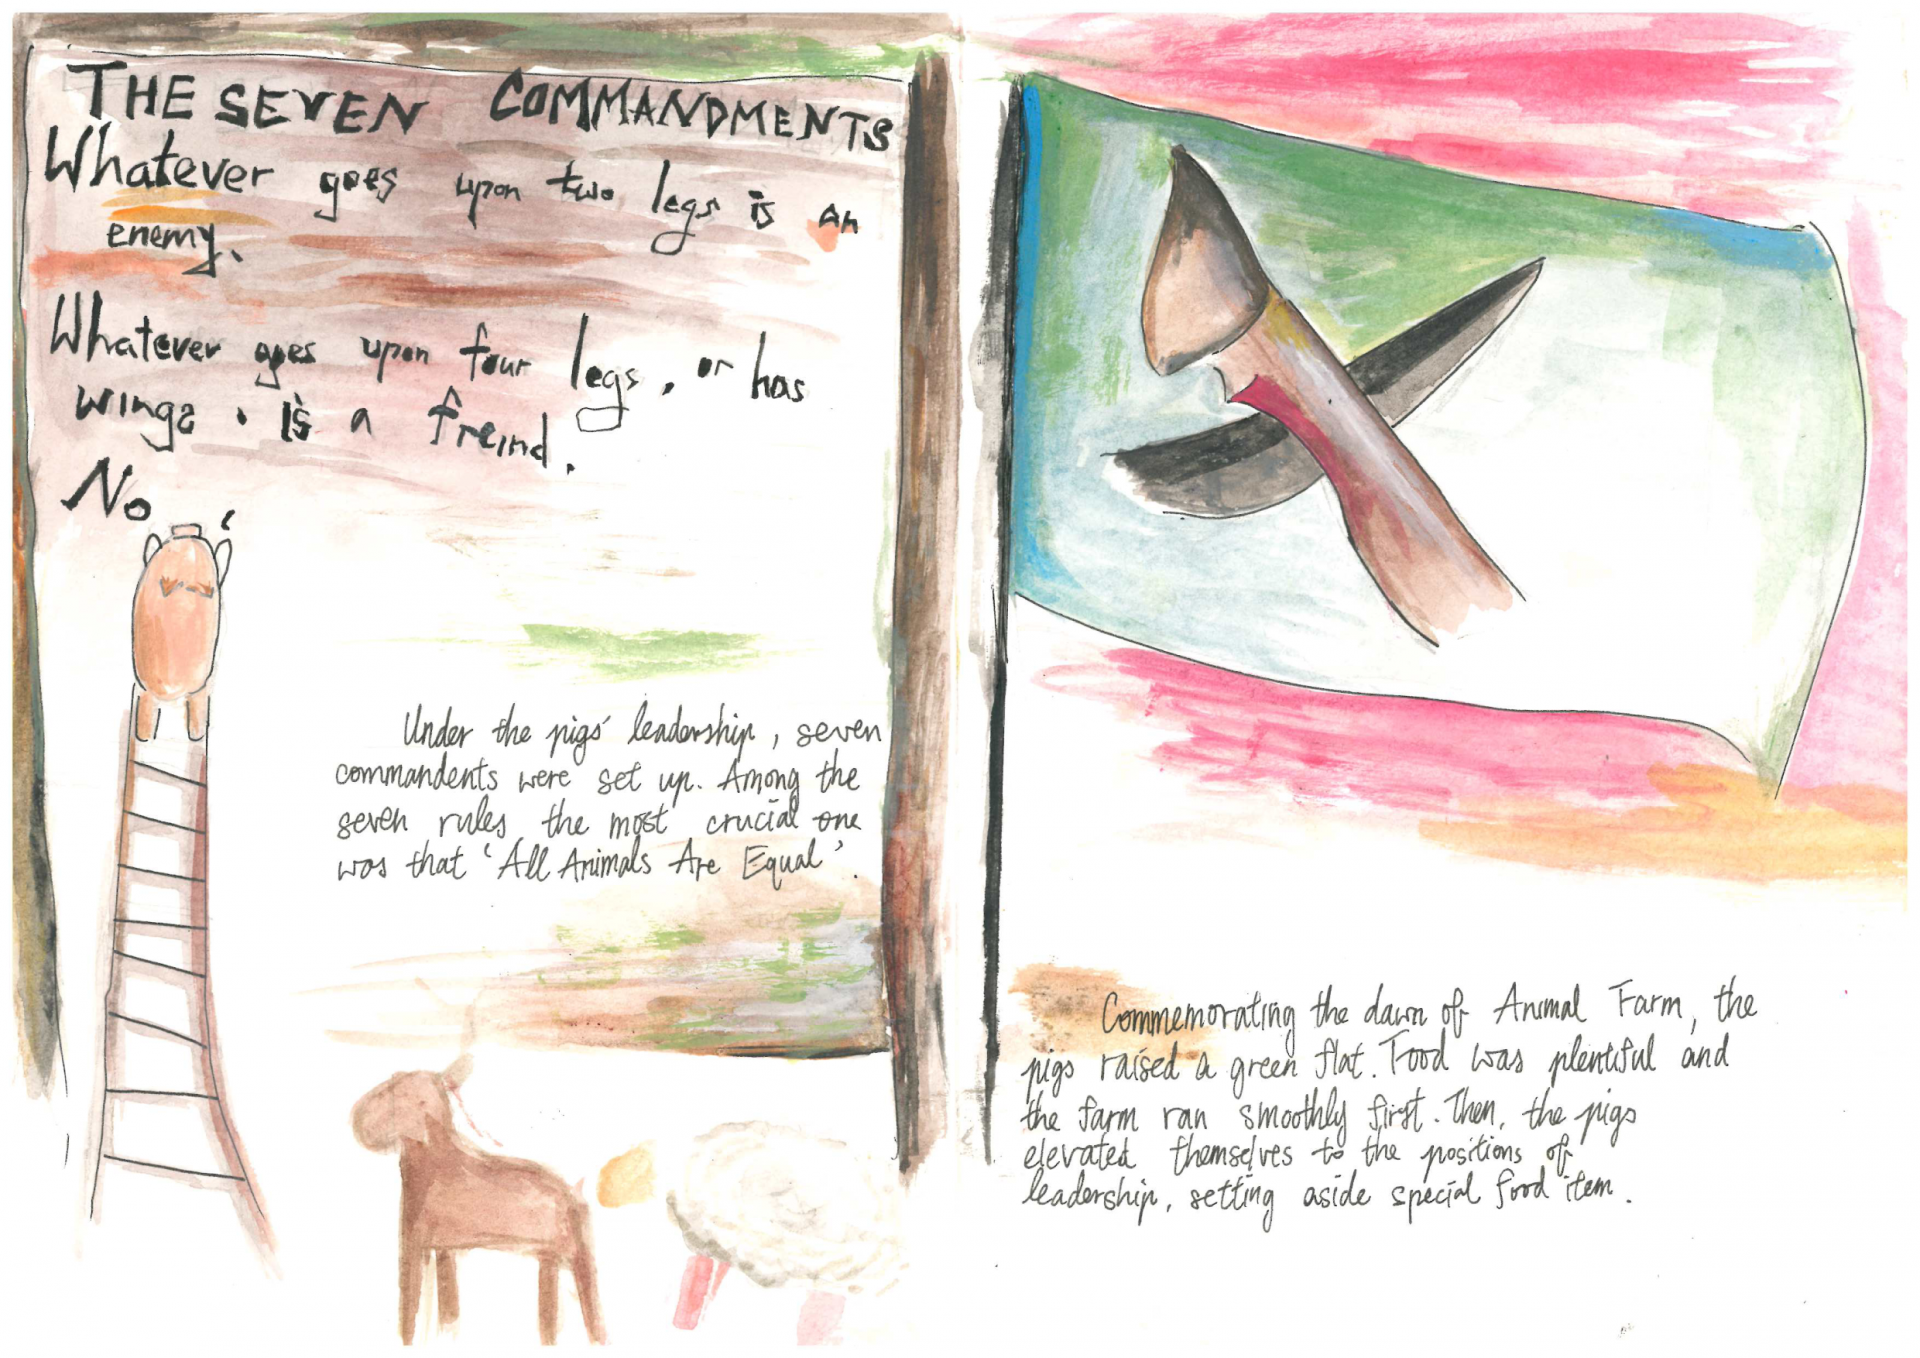 THE SEVEN COMMANDMENTS
Whatever goes upon two legs is an
enemy.
Whatever goes upon four legs, or has
wings, is a freind.
No
Under the pigs' leadership, seven
commandents were set up. Among the
seven rules, the most crucial one
was that 'All Animals Are Equal'.
Commemorating the dawn of Animal Farm, the
pigs raised a green flat. Food was plentiful and
the farm ran smoothly first. Then, the pigs
elevated themselves to the positions of
leadership, setting aside special food item.